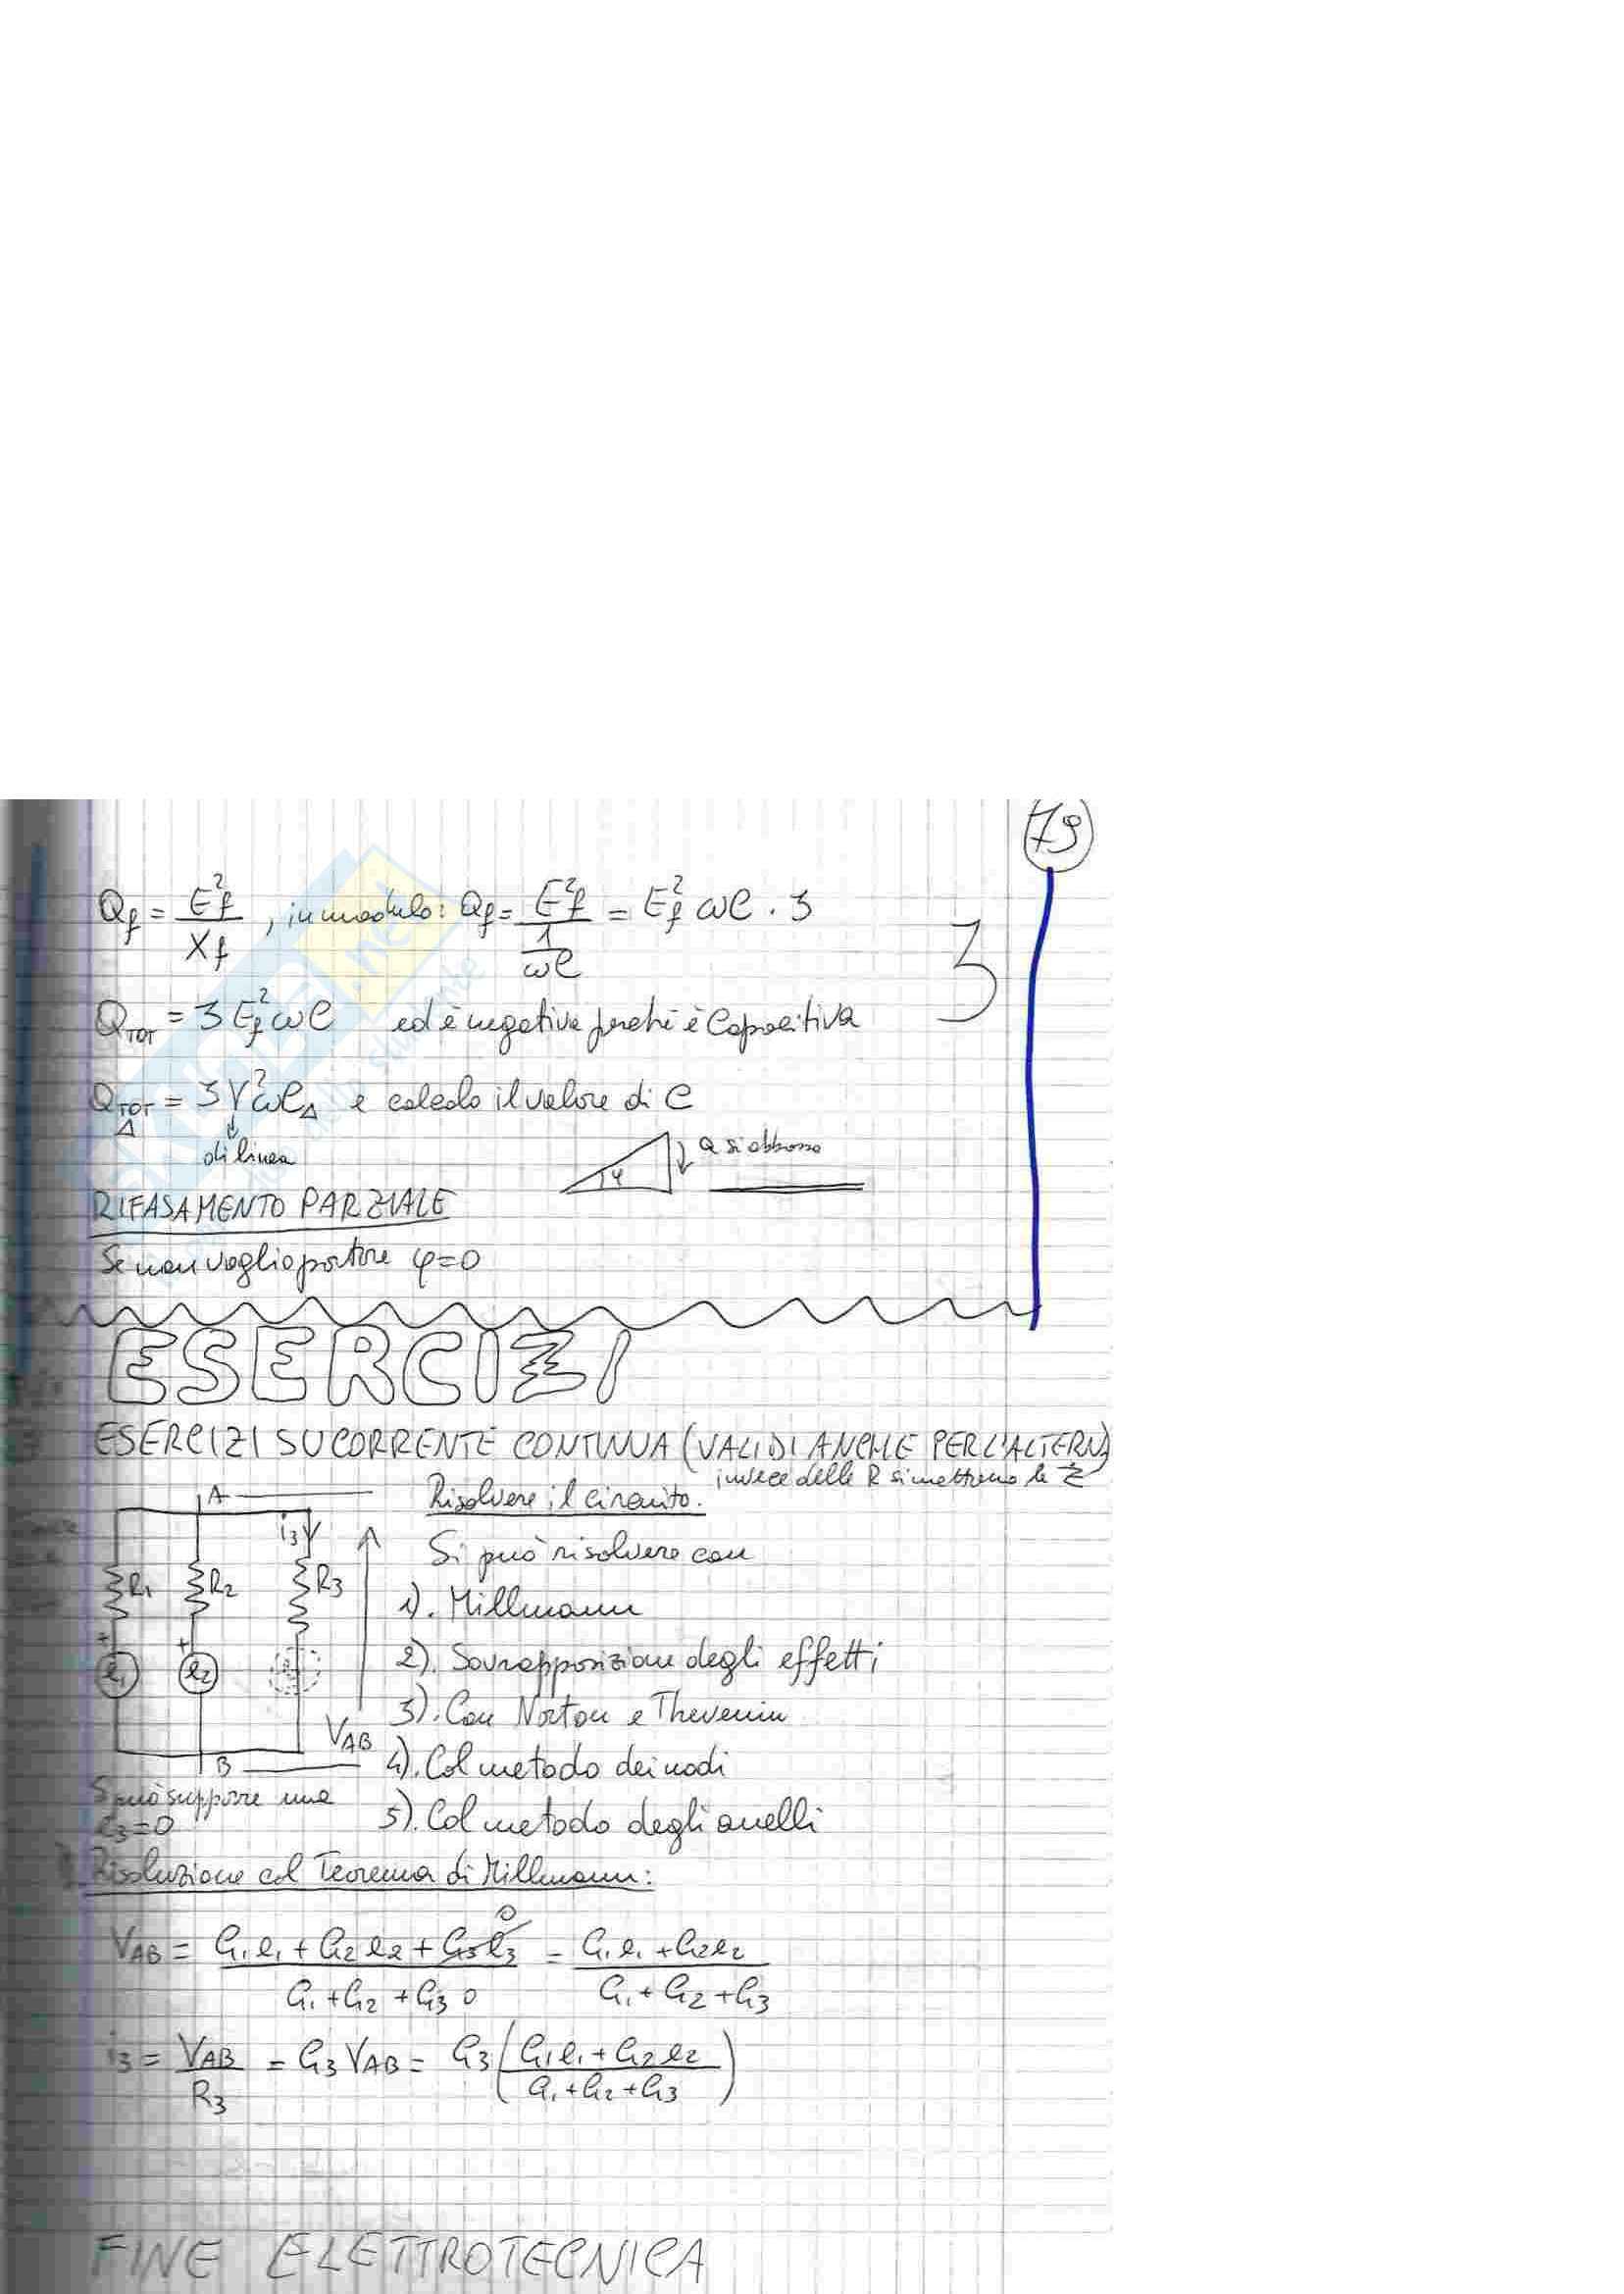 79
Qf = E²f / Xf , in modulo: Qf = E²f / (1/ωC) = E²f ωC · 3
3
QTOT = 3 E²f ωC ed è negativa perché è Capacitiva
QTOT Δ = 3 V² ωCΔ e calcolo il valore di C
di linea
φ
Q si abbassa
RIFASAMENTO PARZIALE
Se non voglio portare φ=0
ESERCIZI
ESERCIZI SU CORRENTE CONTINUA (VALIDI ANCHE PER L'ALTERN)
invece delle R si mettono le Ż
A
Risolvere il circuito.
i3
Si può risolvere con
R1 R2 R3
1). Millmann
+ +
e1 e2
2). Sovrapposizione degli effetti
3). Con Norton e Thevenin
VAB
B
4). Col metodo dei nodi
Si può supporre una
e3=0
5). Col metodo degli anelli
Risoluzione col Teorema di Millmann:
VAB = (G1e1 + G2e2 + G3e3) / (G1+G2+G3) = (G1e1 + G2e2) / (G1+G2+G3)
i3 = VAB / R3 = G3 VAB = G3 ((G1e1 + G2e2) / (G1+G2+G3))
FINE ELETTROTECNICA